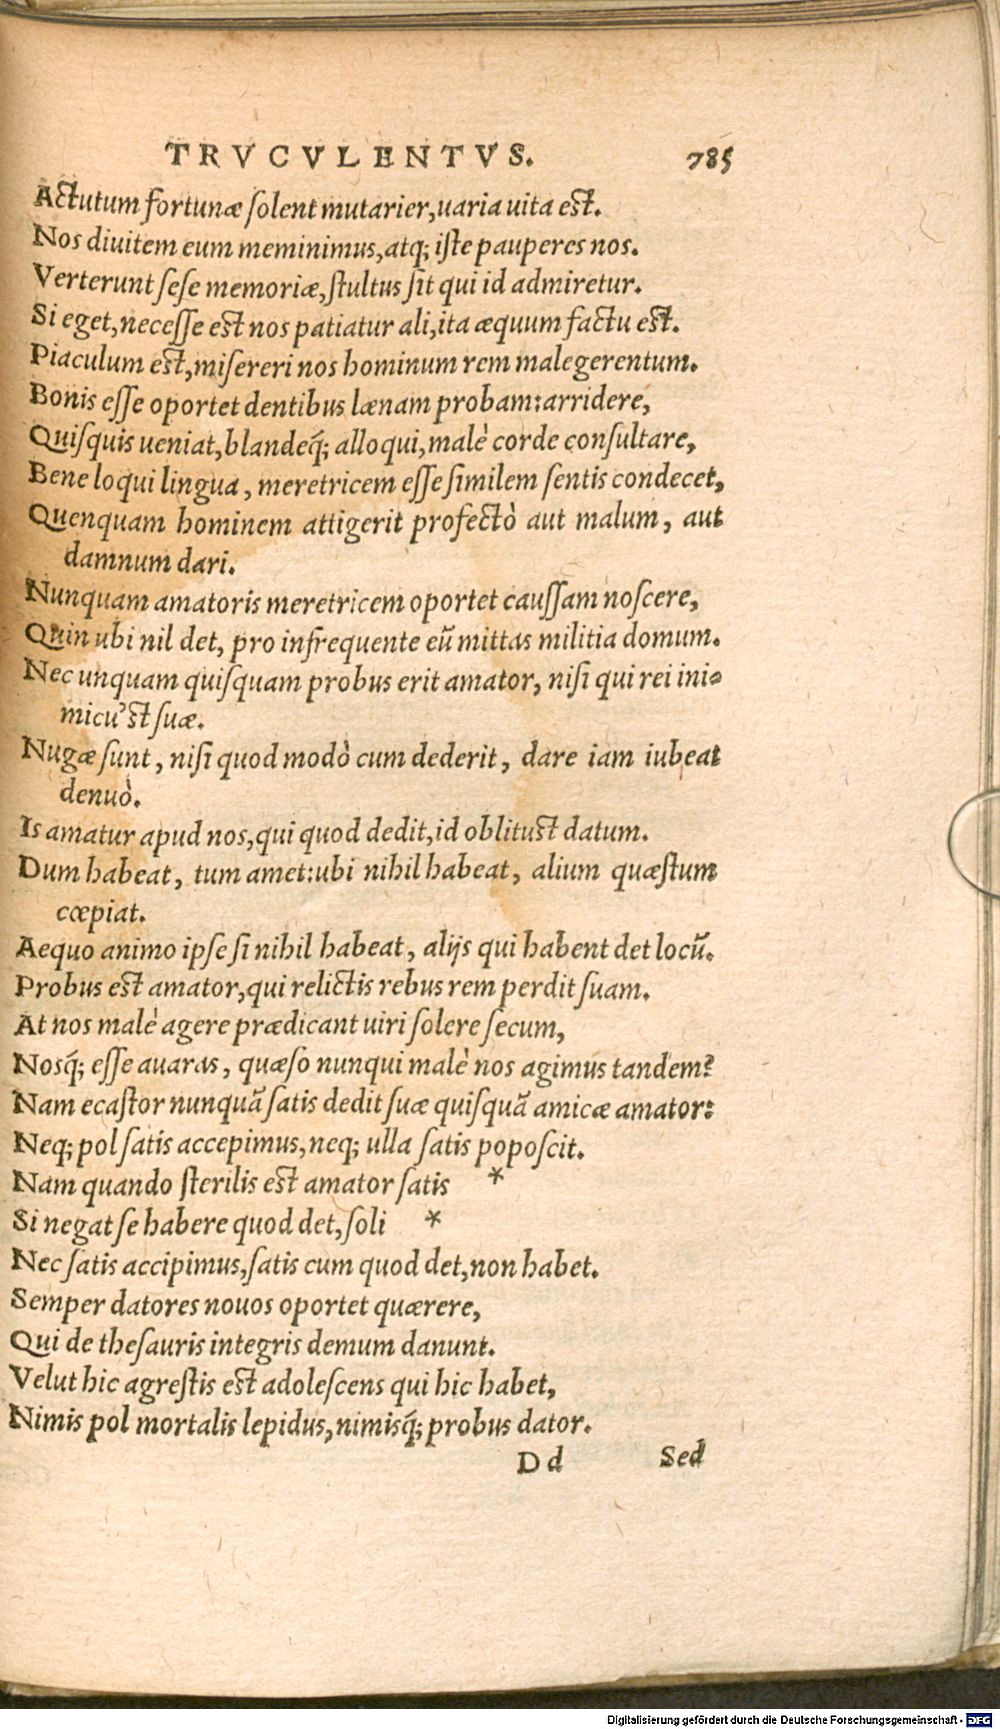 TRVCVLENTVS. 785
Actutum fortunæ ſolent mutarier,uaria uita est.
Nos diuitem eum meminimus,atq; iſte pauperes nos.
Verterunt ſeſe memoriæ,ſtultus ſit qui id admiretur.
Si eget,neceſſe est nos patiatur ali,ita æquum factu est.
Piaculum est,miſereri nos hominum rem male gerentum.
Bonis eſſe oportet dentibus lænam probam:arridere,
Quiſquis ueniat,blandeq́; alloqui,malè corde conſultare,
Bene loqui lingua, meretricem eſſe ſimilem ſentis condecet,
Quenquam hominem attigerit profectò aut malum, aut
damnum dari.
Nunquam amatoris meretricem oportet cauſſam noſcere,
Quin ubi nil det, pro infrequente eū mittas militia domum.
Nec unquam quiſquam probus erit amator, niſi qui rei ini-
micu’st ſuæ.
Nugæ ſunt, niſi quod modò cum dederit, dare iam iubeat
denuò.
Is amatur apud nos,qui quod dedit,id oblitust datum.
Dum habeat, tum amet:ubi nihil habeat, alium quæſtum
cœpiat.
Aequo animo ipſe ſi nihil habeat, alijs qui habent det locū.
Probus est amator,qui relictis rebus rem perdit ſuam.
At nos malè agere prædicant uiri ſolere ſecum,
Nosq́; eſſe auaras, quæſo nunqui malè nos agimus tandem?
Nam ecaſtor nunquā ſatis dedit ſuæ quiſquā amicæ amator:
Neq; pol ſatis accepimus,neq; ulla ſatis popoſcit.
Nam quando ſterilis est amator ſatis *
Si negat ſe habere quod det,ſoli *
Nec ſatis accipimus,ſatis cum quod det,non habet.
Semper datores nouos oportet quærere,
Qui de theſauris integris demum danunt.
Velut hic agreſtis est adoleſcens qui hic habet,
Nimis pol mortalis lepidus,nimisq́; probus dator.
D d Sed
Digitalisierung gefördert durch die Deutsche Forschungsgemeinschaft - DFG